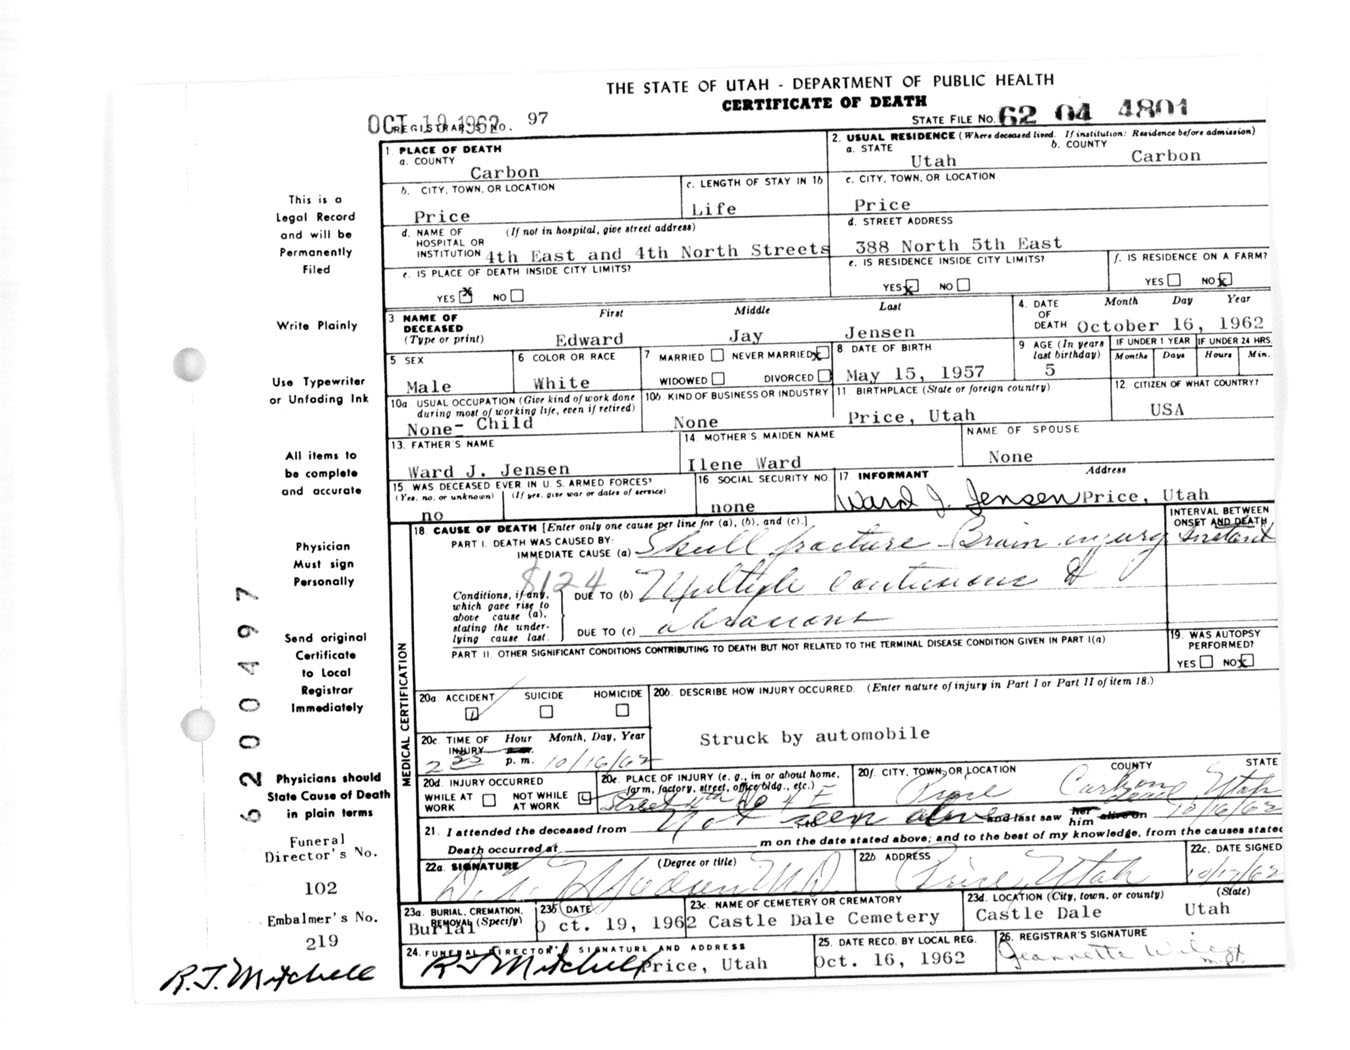 THE STATE OF UTAH - DEPARTMENT OF PUBLIC HEALTH
CERTIFICATE OF DEATH
OCT 19 1962 REGISTRAR'S NO. 97
STATE FILE NO. 62 04 4801
1 PLACE OF DEATH
a. COUNTY
Carbon
2. USUAL RESIDENCE (Where deceased lived. If institution: Residence before admission)
a. STATE b. COUNTY
Utah Carbon
b. CITY, TOWN, OR LOCATION
Price
c. LENGTH OF STAY IN 1b
Life
c. CITY, TOWN, OR LOCATION
Price
d. NAME OF (If not in hospital, give street address)
HOSPITAL OR
INSTITUTION 4th East and 4th North Streets
d. STREET ADDRESS
388 North 5th East
e. IS PLACE OF DEATH INSIDE CITY LIMITS?
YES x NO
e. IS RESIDENCE INSIDE CITY LIMITS?
YES x NO
f. IS RESIDENCE ON A FARM?
YES NO x
3 NAME OF
DECEASED
(Type or print)
First Middle Last
Edward Jay Jensen
4. DATE
OF
DEATH
Month Day Year
October 16, 1962
5 SEX
Male
6 COLOR OR RACE
White
7 MARRIED NEVER MARRIED x
WIDOWED DIVORCED
8 DATE OF BIRTH
May 15, 1957
9 AGE (In years
last birthday)
5
IF UNDER 1 YEAR IF UNDER 24 HRS.
Months Days Hours Min.
10a USUAL OCCUPATION (Give kind of work done
during most of working life, even if retired)
None- Child
10b KIND OF BUSINESS OR INDUSTRY
None
11 BIRTHPLACE (State or foreign country)
Price, Utah
12. CITIZEN OF WHAT COUNTRY?
USA
13. FATHER'S NAME
Ward J. Jensen
14 MOTHER'S MAIDEN NAME
Ilene Ward
NAME OF SPOUSE
None
15. WAS DECEASED EVER IN U. S. ARMED FORCES?
(Yes, no, or unknown) (If yes, give war or dates of service)
no
16 SOCIAL SECURITY NO.
none
17 INFORMANT Address
Ward J. Jensen Price, Utah
18. CAUSE OF DEATH [Enter only one cause per line for (a), (b), and (c).]
PART I. DEATH WAS CAUSED BY:
IMMEDIATE CAUSE (a) Skull fracture - Brain injury
INTERVAL BETWEEN
ONSET AND DEATH
Instant
Conditions, if any,
which gave rise to
above cause (a),
stating the under-
lying cause last.
DUE TO (b) Multiple contusions &
DUE TO (c) abrasions
PART II. OTHER SIGNIFICANT CONDITIONS CONTRIBUTING TO DEATH BUT NOT RELATED TO THE TERMINAL DISEASE CONDITION GIVEN IN PART I(a)
19. WAS AUTOPSY
PERFORMED?
YES NO x
MEDICAL CERTIFICATION
20a. ACCIDENT SUICIDE HOMICIDE
20b. DESCRIBE HOW INJURY OCCURRED. (Enter nature of injury in Part I or Part II of item 18.)
Struck by automobile
20c. TIME OF INJURY Hour Month, Day, Year
2 35 p. m. 10/16/62
20d. INJURY OCCURRED
WHILE AT WORK NOT WHILE AT WORK
20e. PLACE OF INJURY (e. g., in or about home,
farm, factory, street, office bldg., etc.)
Street 4th No 4 E
20f. CITY, TOWN, OR LOCATION COUNTY STATE
Price Carbon Utah
21. I attended the deceased from Not seen alive and last saw her him alive on 10/16/62
Death occurred at m on the date stated above; and to the best of my knowledge, from the causes stated
22a. SIGNATURE (Degree or title)
M.D.
22b. ADDRESS
Price, Utah
22c. DATE SIGNED
10/17/62
23a. BURIAL, CREMATION,
REMOVAL (Specify)
Burial
23b DATE
Oct. 19, 1962
23c. NAME OF CEMETERY OR CREMATORY
Castle Dale Cemetery
23d. LOCATION (City, town, or county) (State)
Castle Dale Utah
24. FUNERAL DIRECTOR'S SIGNATURE AND ADDRESS
R J Mitchell Price, Utah
25. DATE RECD. BY LOCAL REG.
Oct. 16, 1962
26. REGISTRAR'S SIGNATURE
Jeannette
This is a
Legal Record
and will be
Permanently
Filed
Write Plainly
Use Typewriter
or Unfading Ink
All items to
be complete
and accurate
Physician
Must sign
Personally
Send original
Certificate
to Local
Registrar
Immediately
Physicians should
State Cause of Death
in plain terms
Funeral
Director's No.
102
Embalmer's No.
219
R.J. Mitchell
6200497